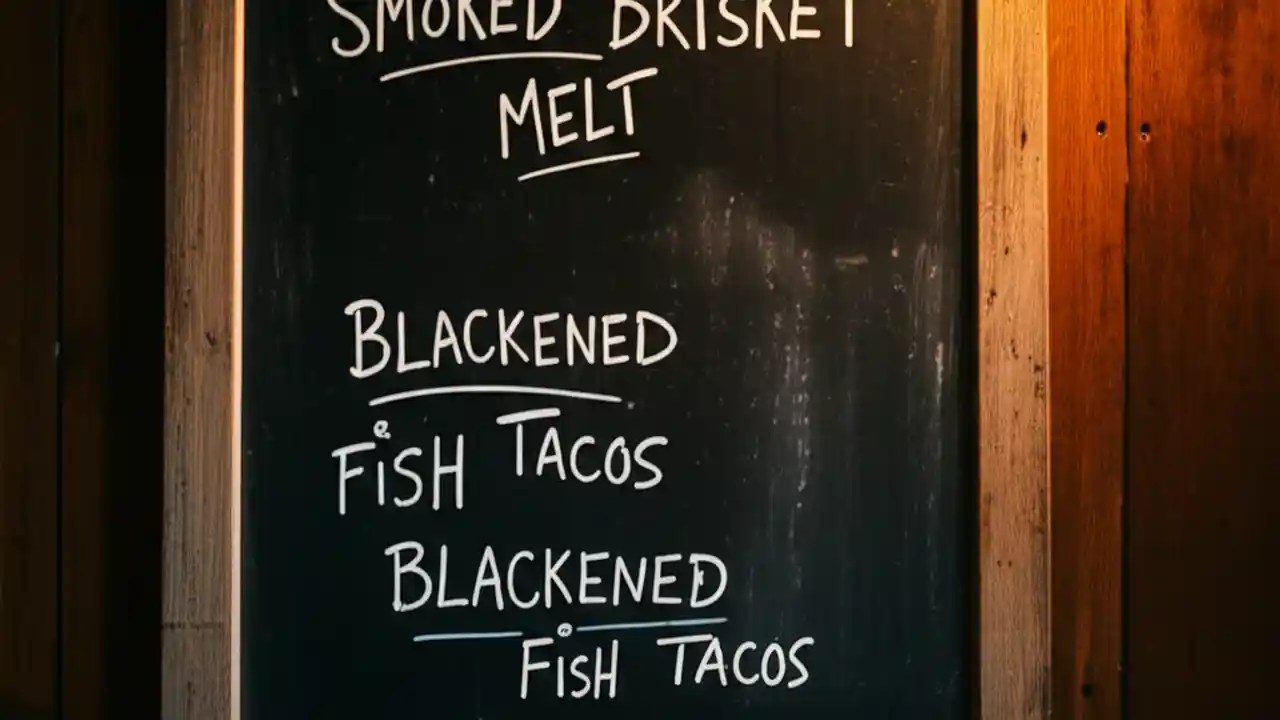 SMOKED BRISKET
MELT
BLACKENED
FiSH TACOS
BLACKENED
FiSH TACOS